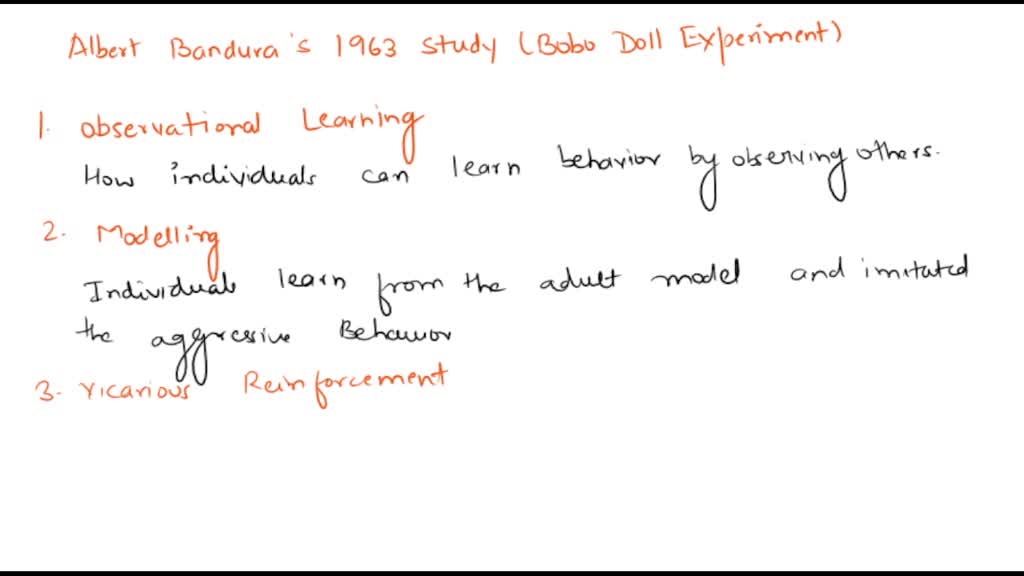 Albert Bandura's 1963 study (Bobo Doll Experiment)
1. Observational Learning
How individuals can learn behavior by observing others.
2. Modelling
Individuals learn from the adult model and imitated
the aggressive Behavior
3. Vicarious Reinforcement